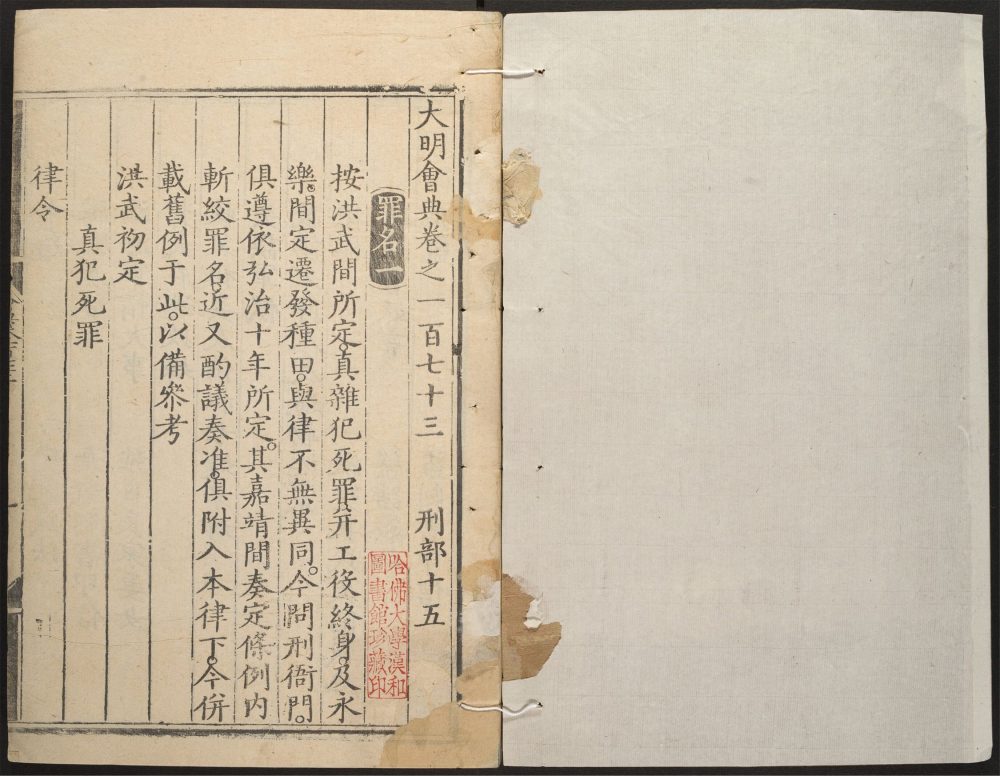 大明會典卷之一百七十三　刑部十五
罪名一
按洪武間所定。真雜犯死罪。幷工役終身。及永
樂。間定遷發種田。與律不無異同。今問刑衙門。
俱遵依弘治十年所定。其嘉靖間奏定條例內
斬絞罪名。近又酌議奏准。俱附入本律下。今併
載舊例于此。以備叅考
洪武初定
真犯死罪
律令
哈佛大學漢和
圖書館珍藏印